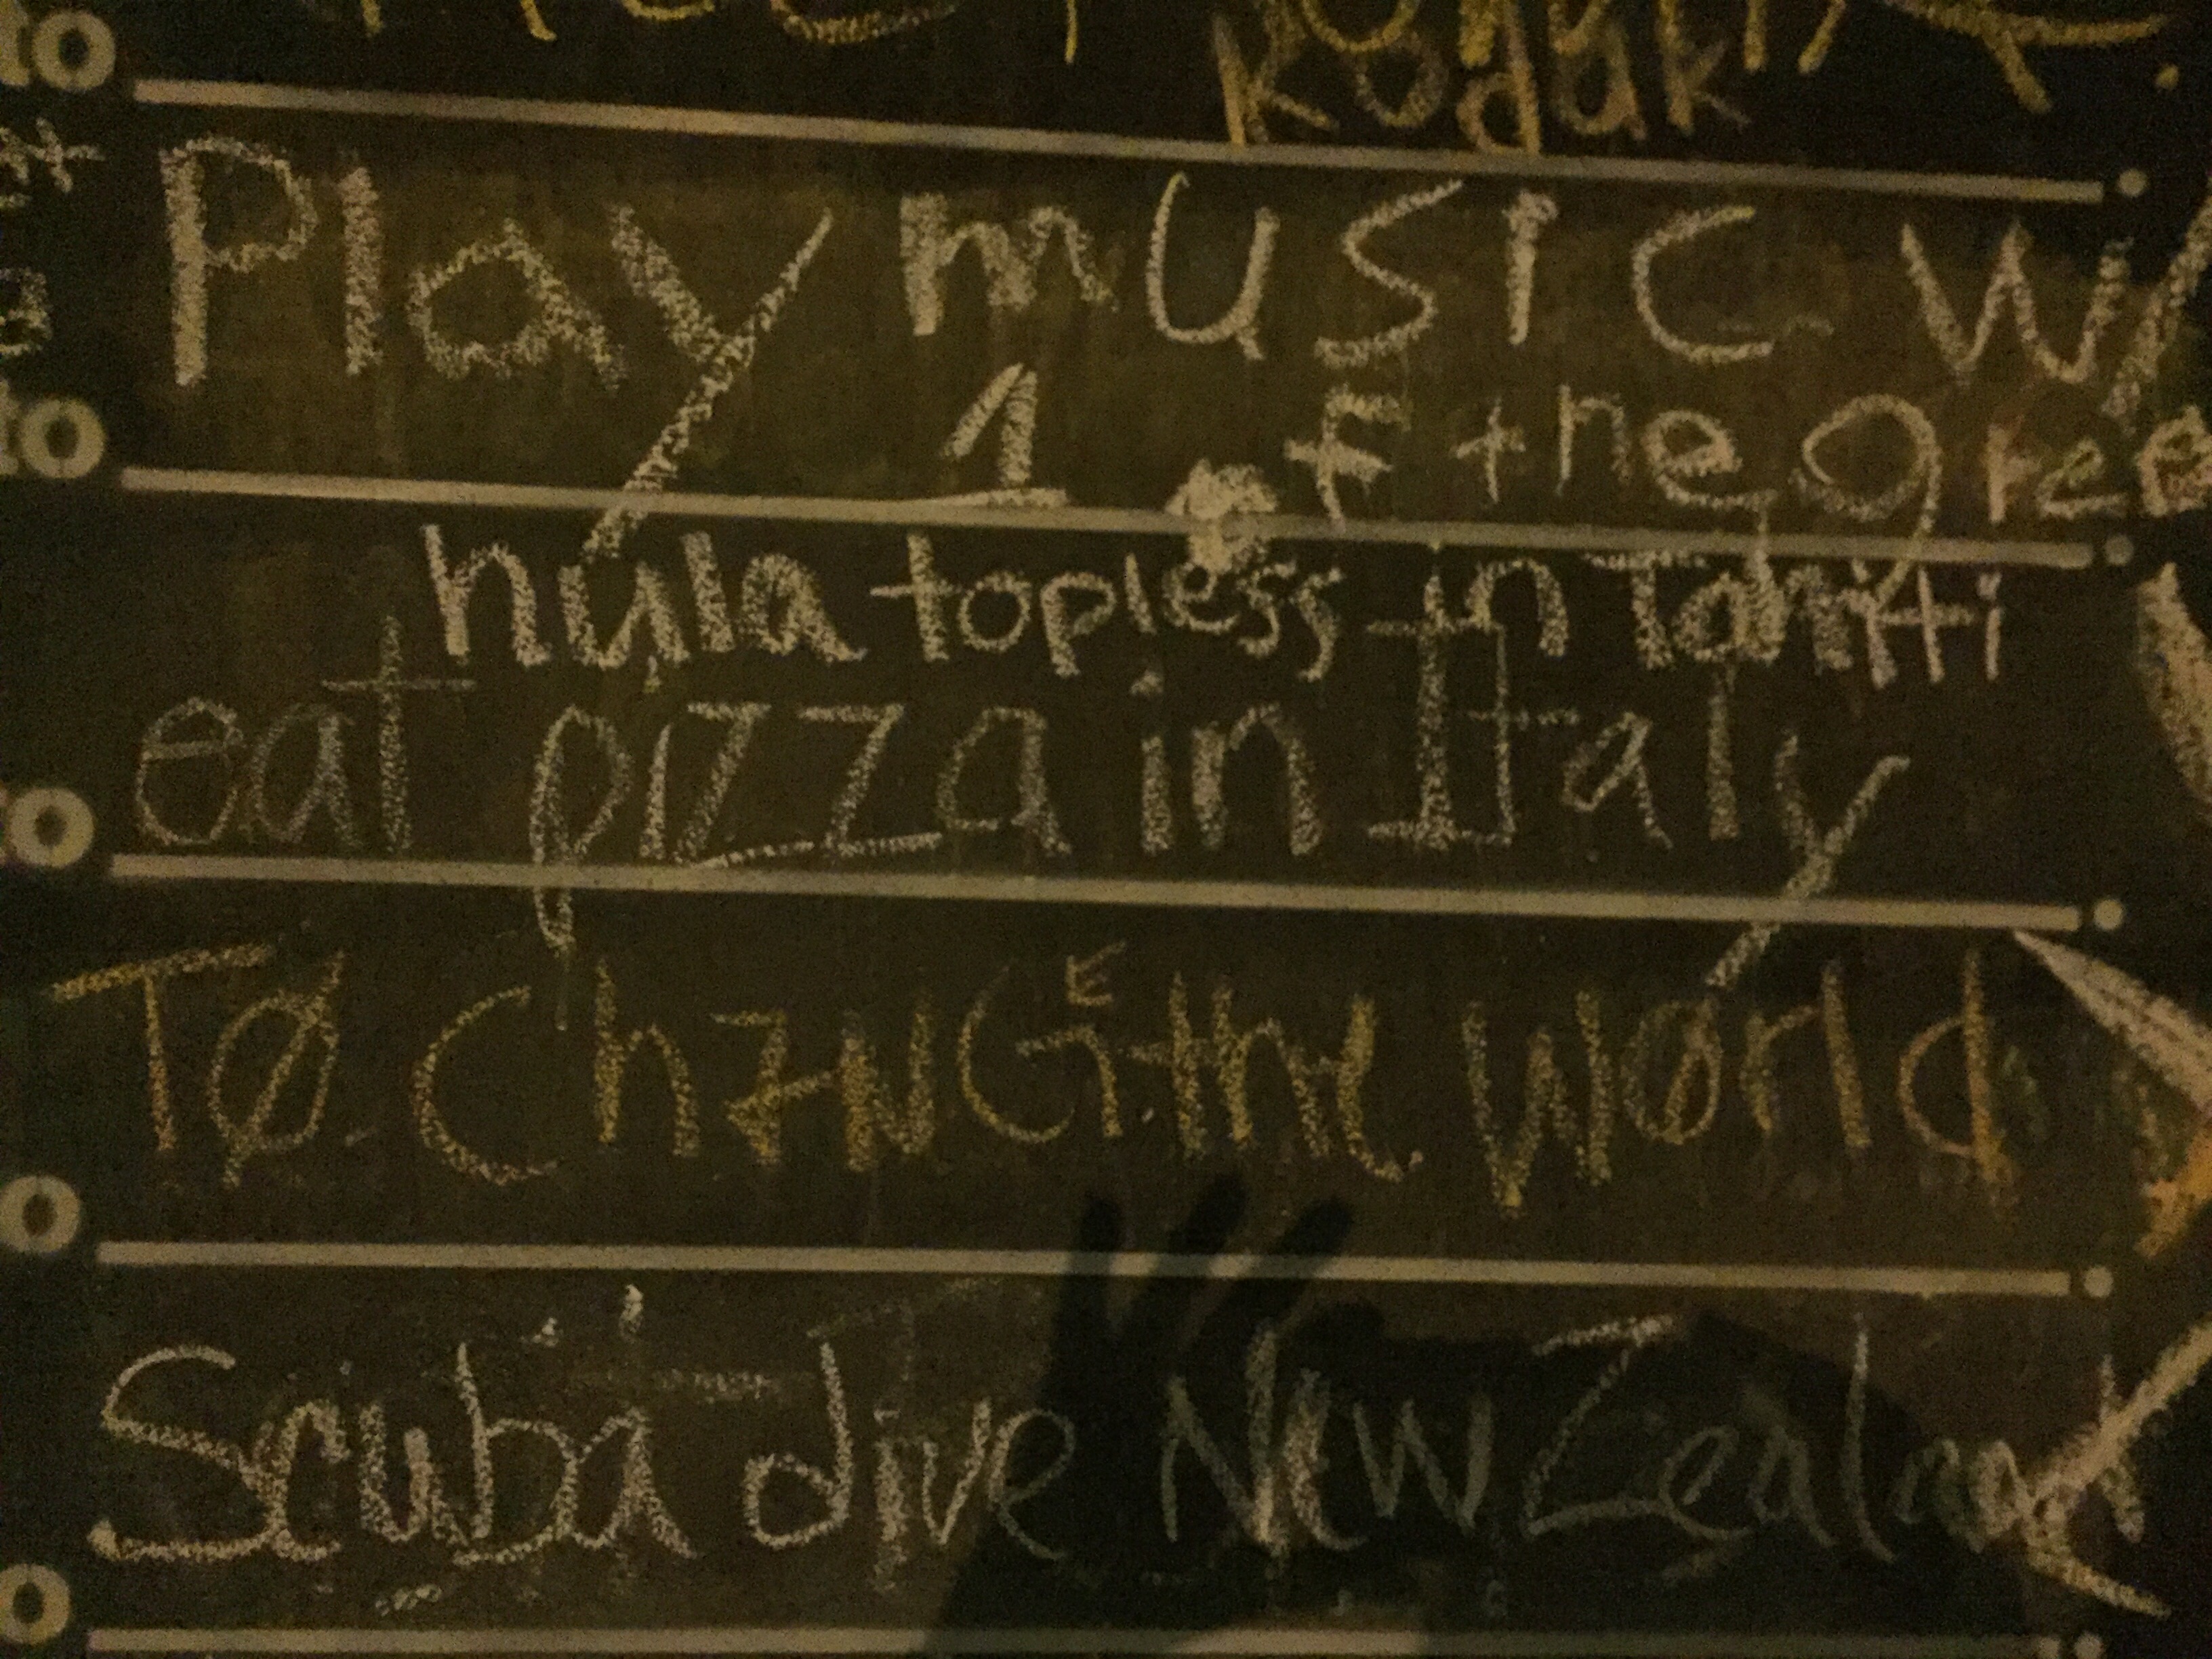 to
Kodak
Play music w/
1 of the gree
to
hula topless in Tahiti
eat pizza in Italy
o
TØ ChANGE the wørld
o
Scuba dive New Zealand
o